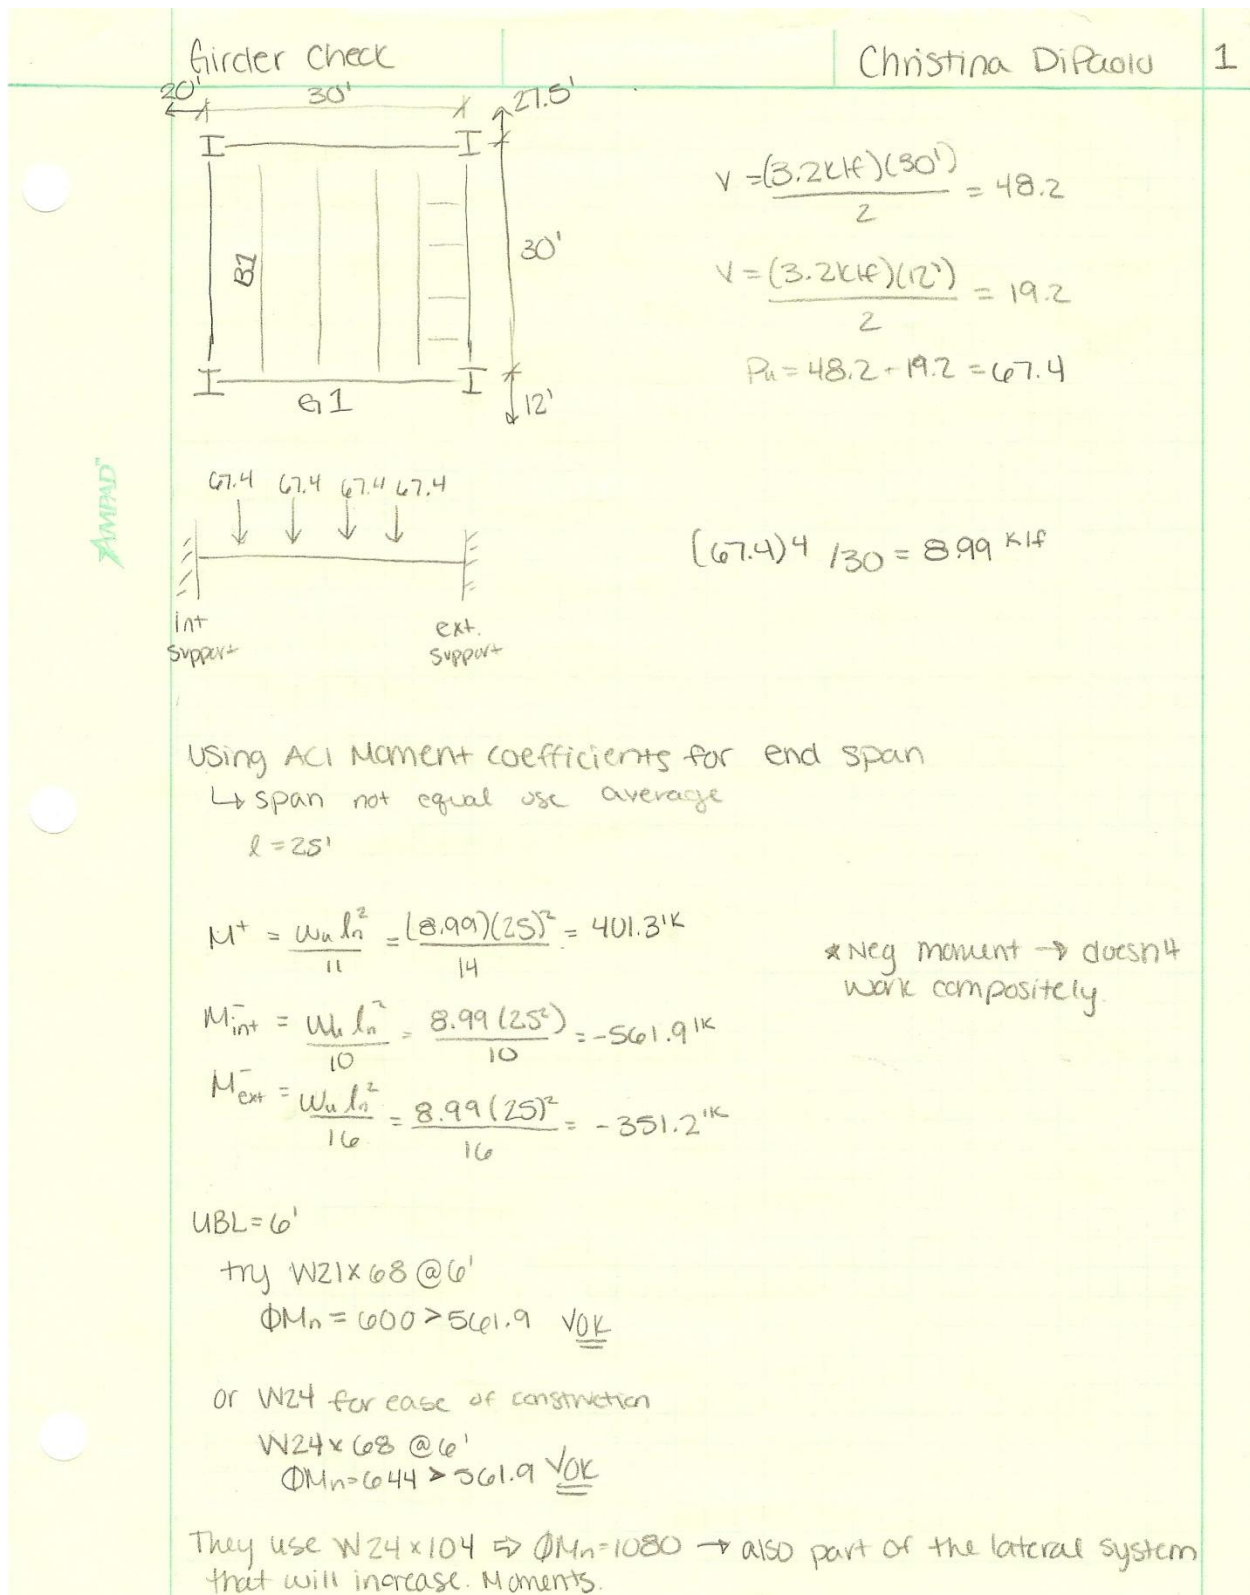 Girder Check
Christina DiPaolo
1
20'
30'
27.5'
B1
30'
G1
12'
V = (3.2klf)(30') / 2 = 48.2
V = (3.2klf)(12') / 2 = 19.2
Pu = 48.2 + 19.2 = 67.4
AMPAD™
67.4 67.4 67.4 67.4
int support
ext. support
(67.4)4 /30 = 8.99 klf
Using ACI Moment coefficients for end span
↳ span not equal use average
l = 25'
M⁺ = wᵤlₙ² / 11 = (8.99)(25)² / 14 = 401.3'k
* Neg moment → doesn't
work compositely.
M⁻int = wᵤlₙ² / 10 = 8.99(25²) / 10 = -561.9'k
M⁻ext = wᵤlₙ² / 16 = 8.99(25)² / 16 = -351.2'k
UBL = 6'
try W21x68 @6'
ΦMn = 600 > 561.9 √OK
or W24 for ease of construction
W24x68 @6'
ΦMn=644 > 561.9 √OK
They use W24x104 ⇒ ΦMn=1080 → also part of the lateral system
that will increase. Moments.